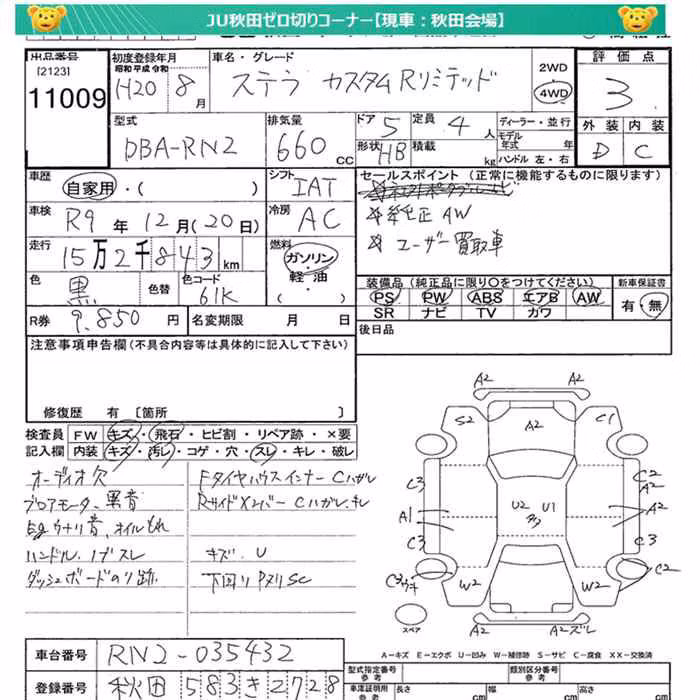 JU秋田ゼロ切りコーナー【現車：秋田会場】
出品番号
[2123]
11009
初度登録年月
昭和 平成 令和
H20 8 月
車名・グレード
ステラ カスタムRリミテッド
2WD
4WD
評価点
3
外装 内装
D C
型式
DBA-RN2
排気量
660 cc
ドア 5
定員 4 人
形状 HB
積載 kg
ディーラー・並行
モデル年式 年式
ハンドル 左・右
車歴
自家用・( )
シフト
IAT
セールスポイント (正常に機能するものに限ります)
※純正AW
※ユーザー買取車
車検
R9 年 12 月 (20 日)
冷房
AC
走行
15万2千843 km
燃料
ガソリン
軽油
( )
色
黒
色替
色コード
61K
装備品 (純正品に限り○をつけてください)
PS PW ABS エアB AW
SR ナビ TV カワ
新車保証書
有・無
R券 9.850 円
名変期限 月 日
後日品
注意事項申告欄 (不具合内容等は具体的に記入して下さい)
修復歴 有 〔箇所 〕
検査員
記入欄
FW キズ・飛石・ヒビ割・リペア跡・×要
内装 キズ・汚レ・コゲ・穴・スレ・キレ・破レ
オーディオ欠
ブロアモータ、異音
Egウナリ音、オイルもれ
ハンドル、ノブスレ
ダッシュボードのり跡
FタイヤハウスインナーCハガレ
RサイドメンバーCハガレ、キレ
キズ、U
下回りPヌリSC
A2
A2
S2
A2
C1
C3
C2
A2
A1
U2
U1
A2
C3
C3
C3ウキ
W2
W2
C2
A2
A2ズレ
スペア
A－キズ E－エクボ U－凹み W－補修跡 S－サビ C－腐食 XX－交換済
車台番号
RN2-035432
登録番号
秋田 583 き 2728
型式指定番号
類別区分番号
車庫証明用
長さ
幅
高さ
参考